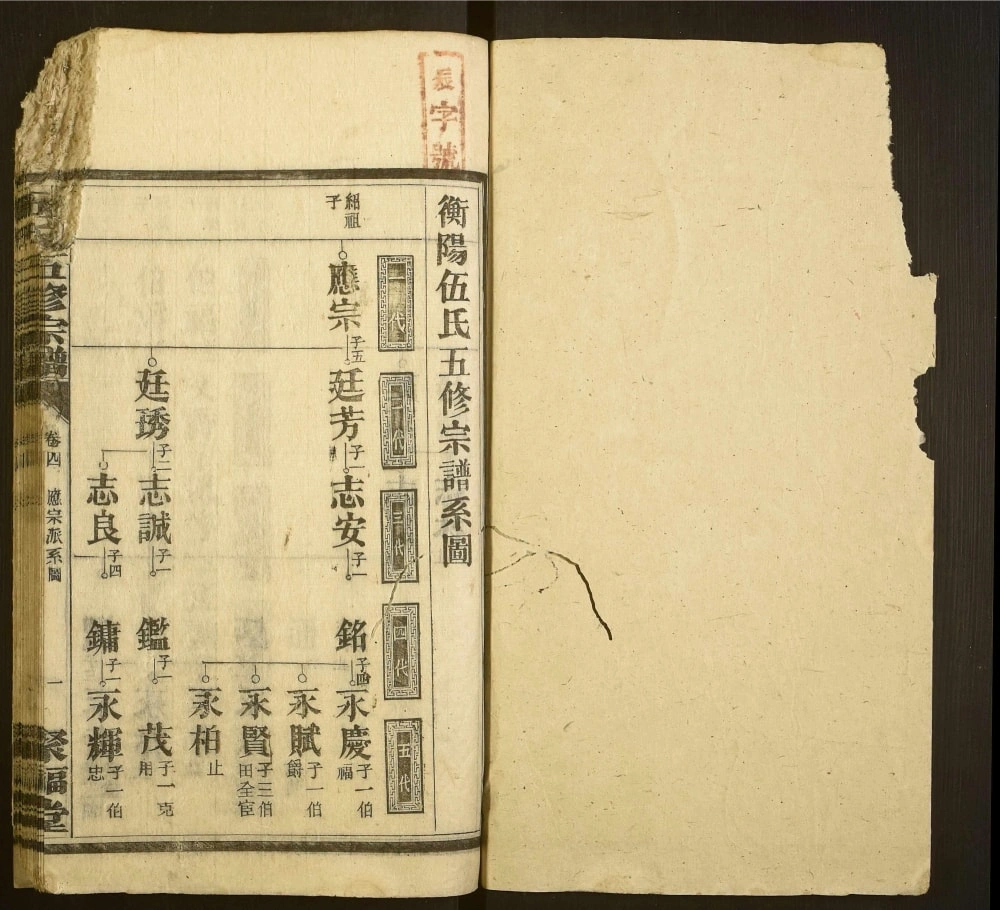 長字號
衡陽伍氏五修宗譜系圖
一代
二代
三代
四代
五代
紹祖
子
應宗
子五
廷芳
子一
志安
子一
銘
子四
永慶
子一伯
福
永賦
子一伯
爵
永賢
子三伯
田全宦
永柏
止
廷琇
子二
志誠
子一
鑑
子一
茂
子一克
用
志良
子四
鏞
子一
永輝
子一伯
忠
五修宗譜
卷四
應宗派系圖
一
聚福堂